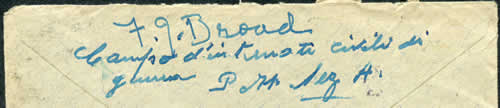 F. J. Broad
Campo d'internati civili di
guerra P.M. Sez A.